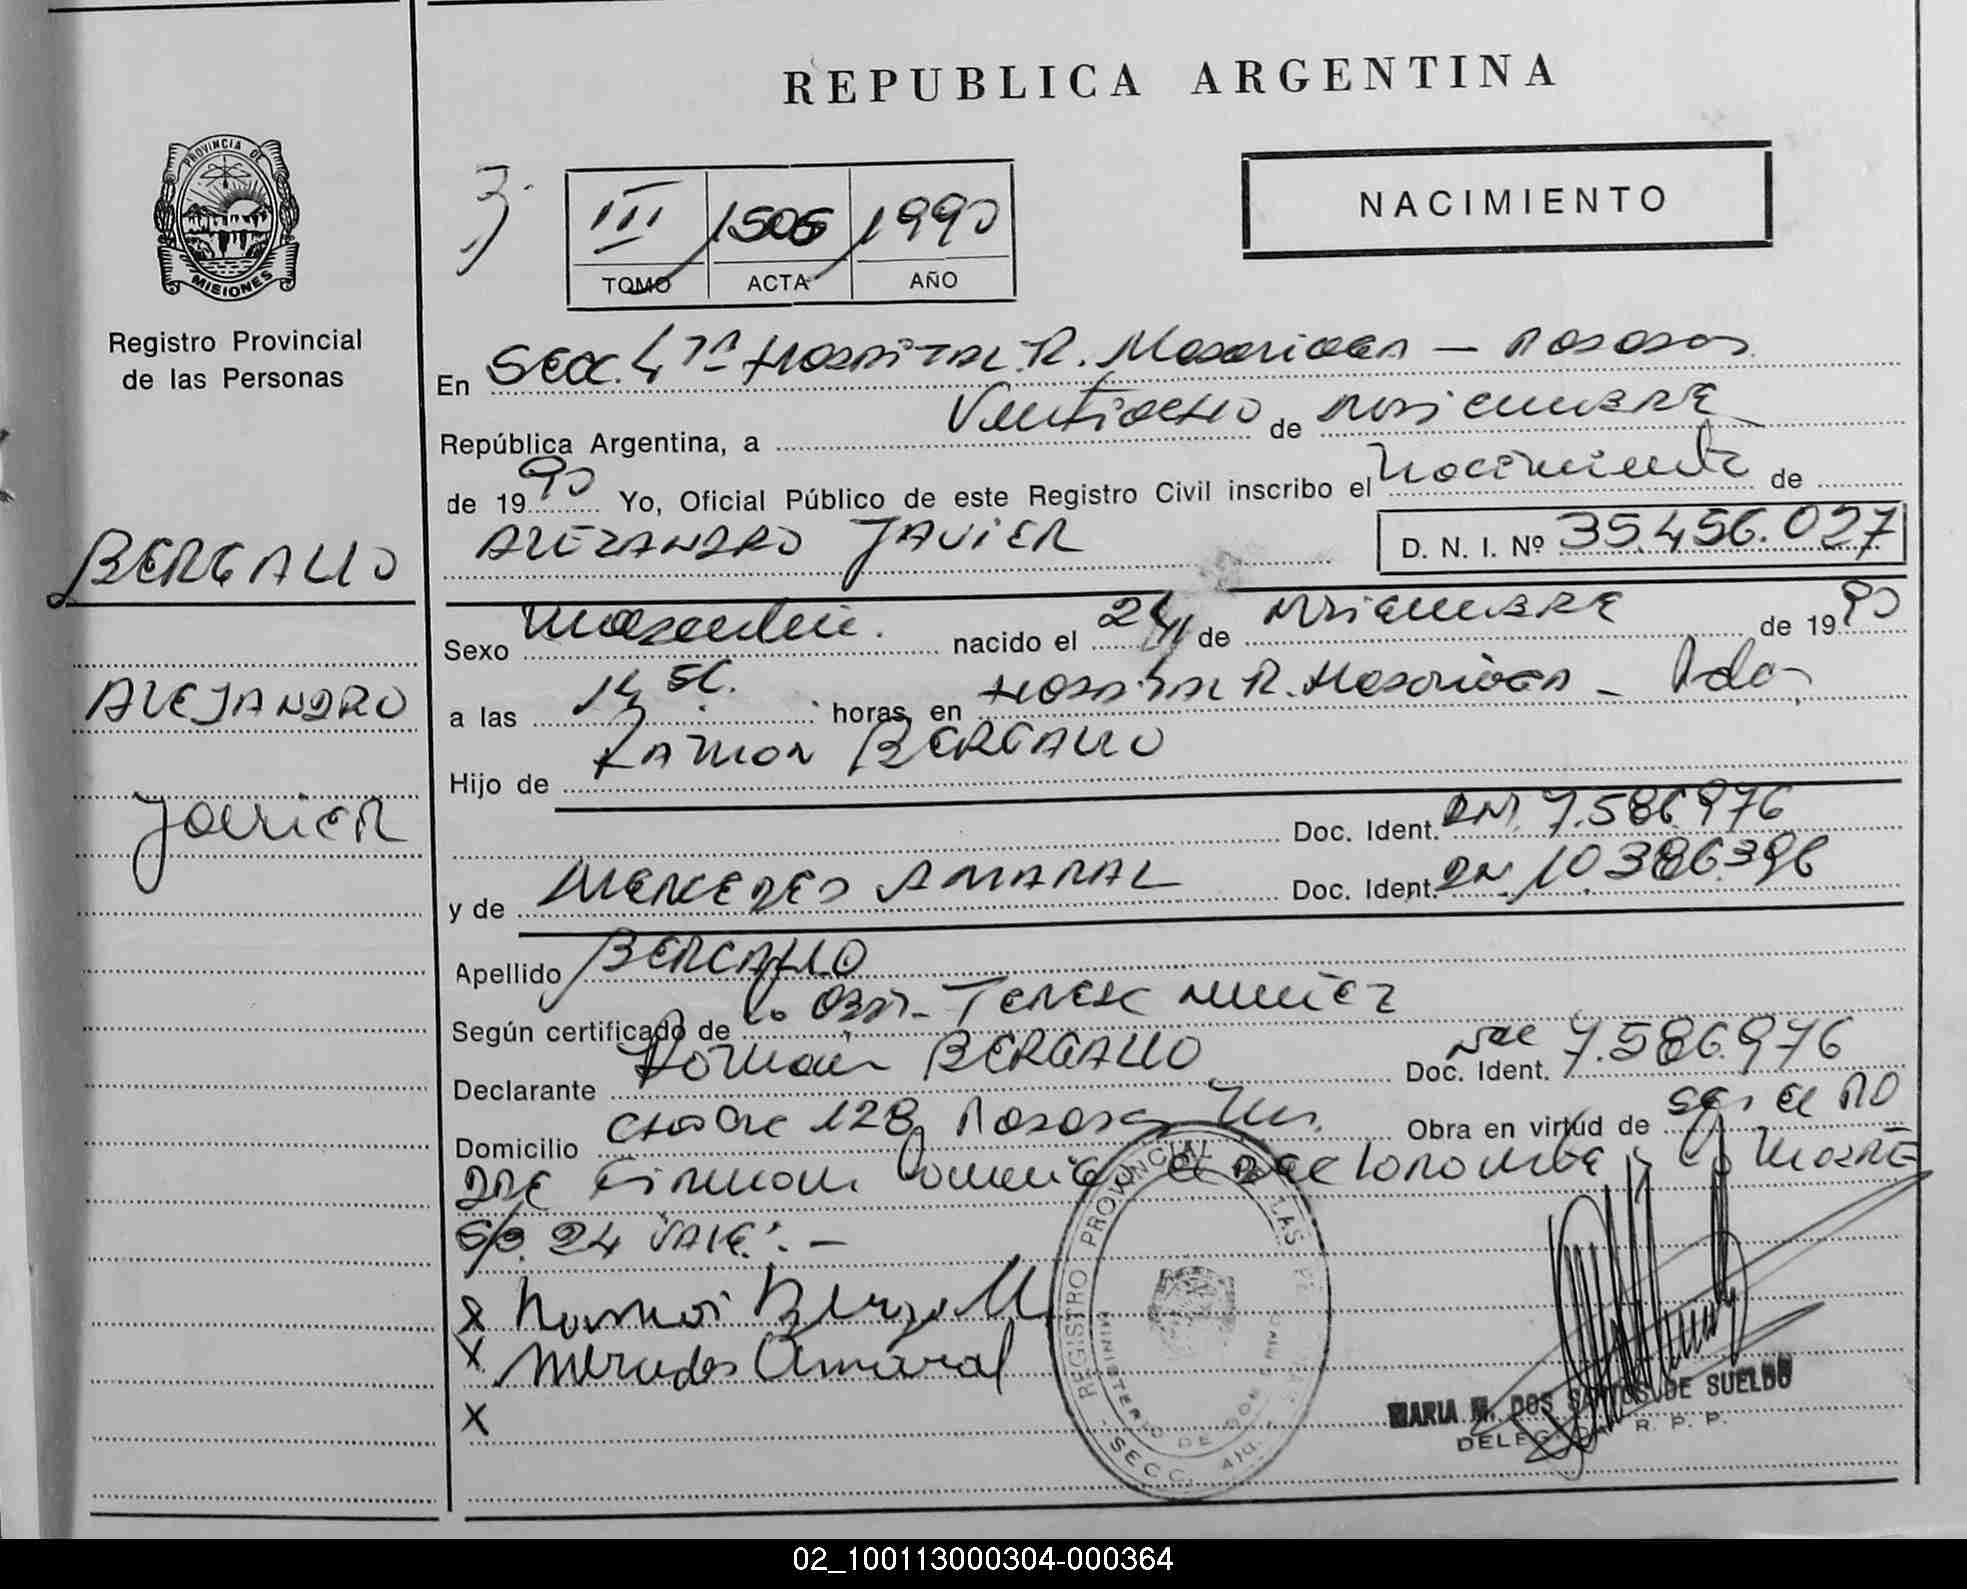 REPUBLICA ARGENTINA
PROVINCIA DE
MISIONES
Registro Provincial
de las Personas
III 1505 1990
TOMO ACTA AÑO
NACIMIENTO
En Secc. 4ta Hospital R. Madariaga - Posadas
República Argentina, a Veintiocho de Noviembre
de 1990 Yo, Oficial Público de este Registro Civil inscribo el Nacimiento de
BERGALLO
ALEJANDRO JAVIER
D. N. I. Nº 35.456.027
Sexo Masculino. nacido el 24 de Noviembre de 1990
ALEJANDRO
a las 14 horas, en Hospital R. Madariaga - Pdas
Hijo de RAMON BERGALLO
JAVIER
Doc. Ident. DNI. 7.586.976
y de MERCEDES AMARAL Doc. Ident. DNI. 10.386.396
Apellido BERGALLO
Según certificado de la Obst. Teresa Nuñez
Declarante Román BERGALLO Doc. Ident. 7.586.976
Domicilio Chacra 128 Posadas Mnes. Obra en virtud de ser el PA
DRE Firman
S/B. 24 VALE.: -
X Bergallo
X Mercedes Amaral
X
REGISTRO PROVINCIAL DE LAS PERSONAS
MINISTERIO DE GOBIERNO
SECC. 4ta.
MARIA M. DOS SANTOS DE SUELDO
DELEGADA R. P. P.
02_100113000304-000364